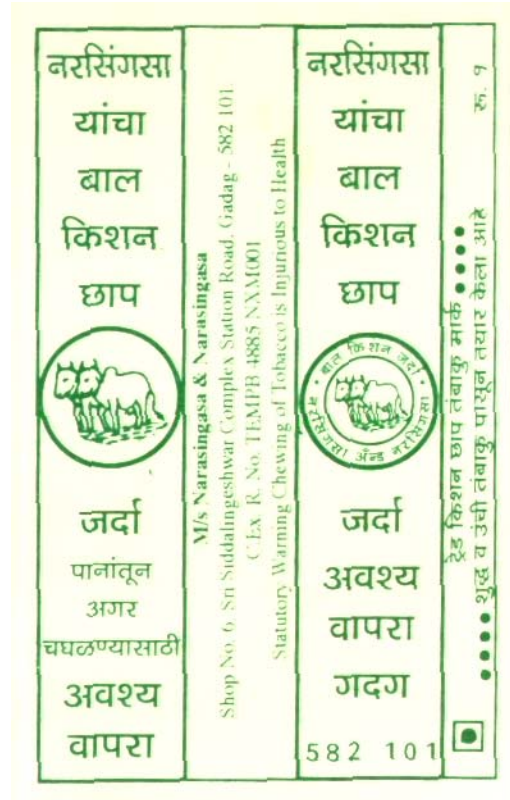 नरसिंगसा
यांचा
बाल
किशन
छाप
जर्दा
पानांतून
अगर
चघळण्यासाठी
अवश्य
वापरा
M/s Narasingasa & Narasingasa
Shop No. 6, Sri Siddalingeshwar Complex Station Road, Gadag - 582 101.
C.Ex. R. No. TEMPB 4885 NXM001
Statutory Warning Chewing of Tobacco is Injurious to Health
नरसिंगसा
यांचा
बाल
किशन
छाप
• बाल किशन जर्दा •
नरसिंगसा अँन्ड नरसिंगसा
जर्दा
अवश्य
वापरा
गदग
582 101
ट्रेड किशन छाप तंबाकु मार्क
शुद्ध व उंची तंबाकु पासून तयार केला आहे
रू. १